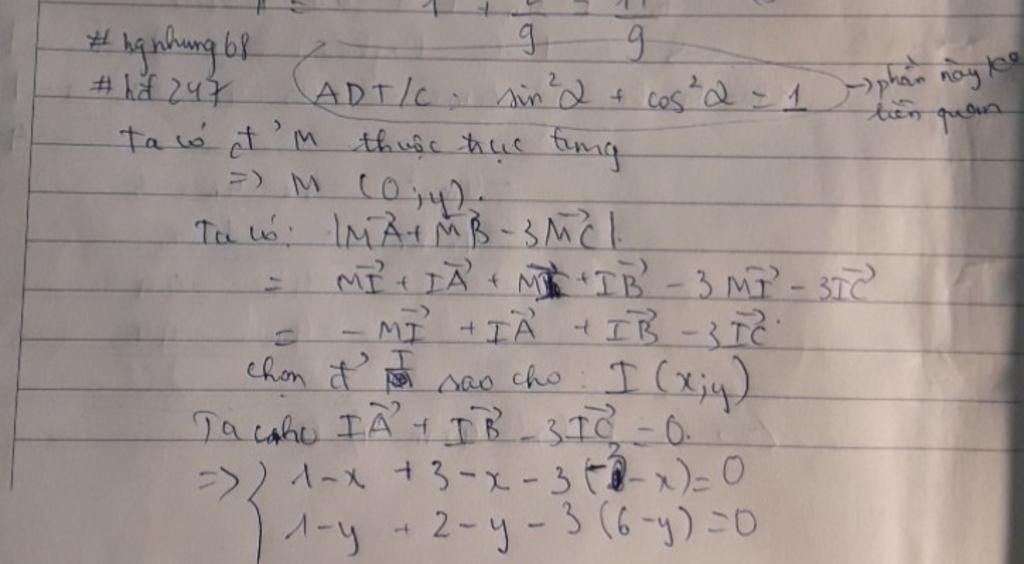 1 + 2/9 = 11/9
#hgnhung68
#hđ247
ADT/C: sin²α + cos²α = 1 → phần này ko liên quan
Ta có đ' M thuộc trục tung
=> M (0;y).
Ta có: |MA→ + MB→ - 3MC→|.
= MI→ + IA→ + MI→ + IB→ - 3MI→ - 3IC→
= -MI→ + IA→ + IB→ - 3IC→
chọn đ' I sao cho: I (x;y)
Ta cho IA→ + IB→ - 3IC→ = 0.
=> { 1-x + 3-x - 3(-2-x)=0
1-y + 2-y - 3(6-y)=0